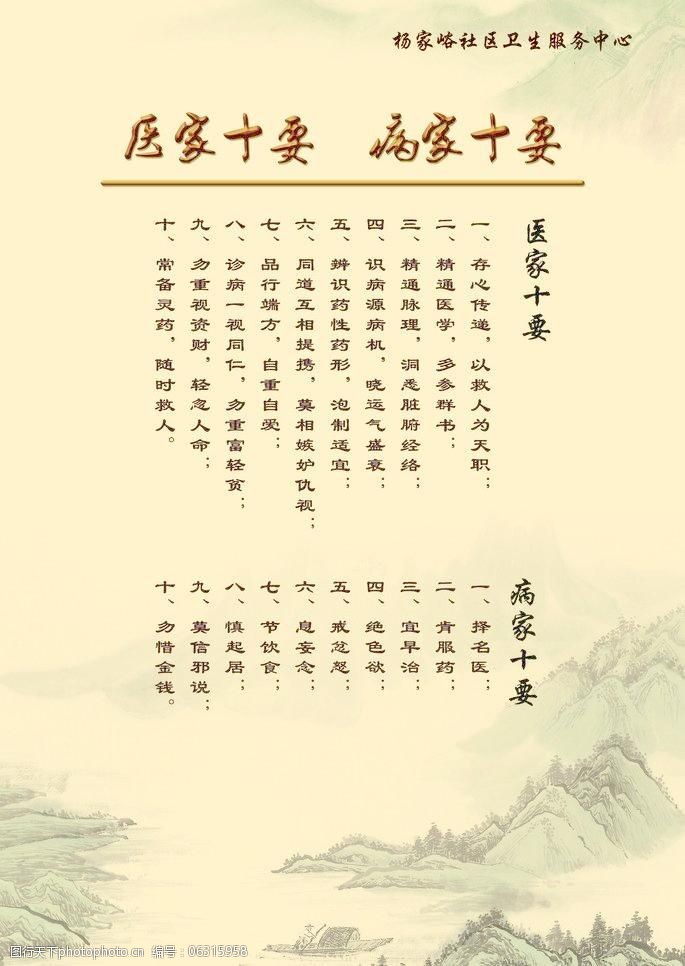 杨家峪社区卫生服务中心
医家十要 病家十要
医家十要
一、存心传递，以救人为天职；
二、精通医学，多参群书；
三、精通脉理，洞悉脏腑经络；
四、识病源病机，晓运气盛衰；
五、辨识药性药形，泡制适宜；
六、同道互相提携，莫相嫉妒仇视；
七、品行端方，自重自爱；
八、诊病一视同仁，勿重富轻贫；
九、勿重视资财，轻忽人命；
十、常备灵药，随时救人。
病家十要
一、择名医；
二、肯服药；
三、宜早治；
四、绝色欲；
五、戒忿怒；
六、息妄念；
七、节饮食；
八、慎起居；
九、莫信邪说；
十、勿惜金钱。
图行天下 www.photophoto.cn 编号：06315958